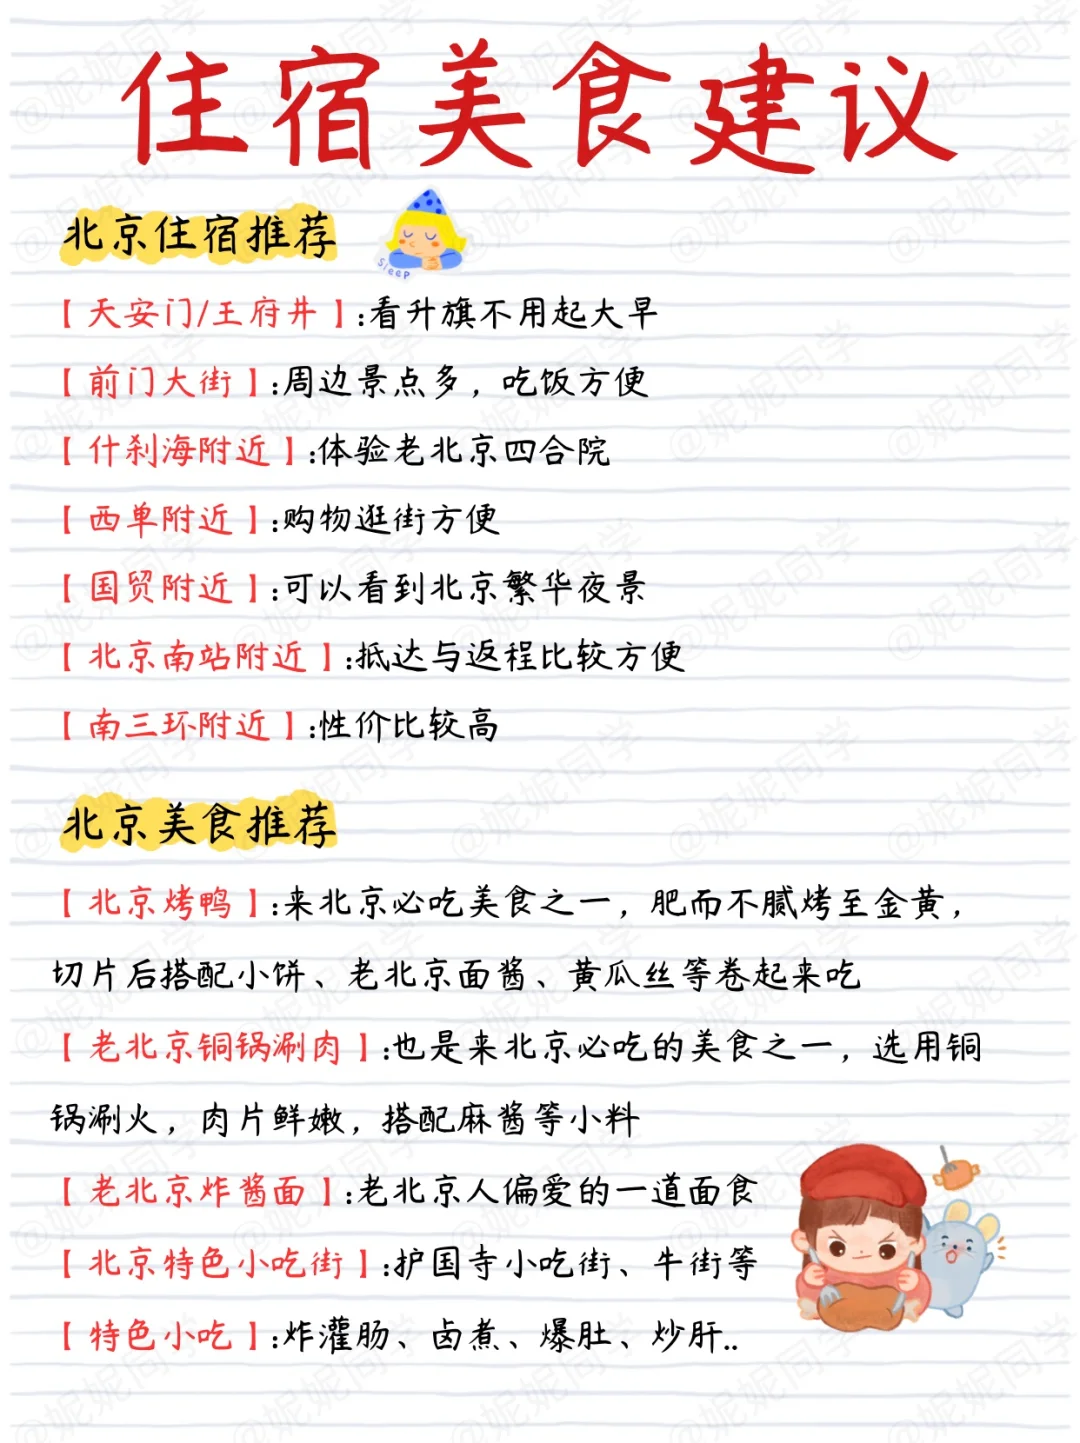 住宿美食建议
北京住宿推荐
sleep
【天安门/王府井】:看升旗不用起大早
【前门大街】:周边景点多，吃饭方便
【什刹海附近】:体验老北京四合院
【西单附近】:购物逛街方便
【国贸附近】:可以看到北京繁华夜景
【北京南站附近】:抵达与返程比较方便
【南三环附近】:性价比较高
北京美食推荐
【北京烤鸭】:来北京必吃美食之一，肥而不腻烤至金黄，
切片后搭配小饼、老北京面酱、黄瓜丝等卷起来吃
【老北京铜锅涮肉】:也是来北京必吃的美食之一，选用铜
锅涮火，肉片鲜嫩，搭配麻酱等小料
【老北京炸酱面】:老北京人偏爱的一道面食
【北京特色小吃街】:护国寺小吃街、牛街等
【特色小吃】:炸灌肠、卤煮、爆肚、炒肝..
@妮妮同学